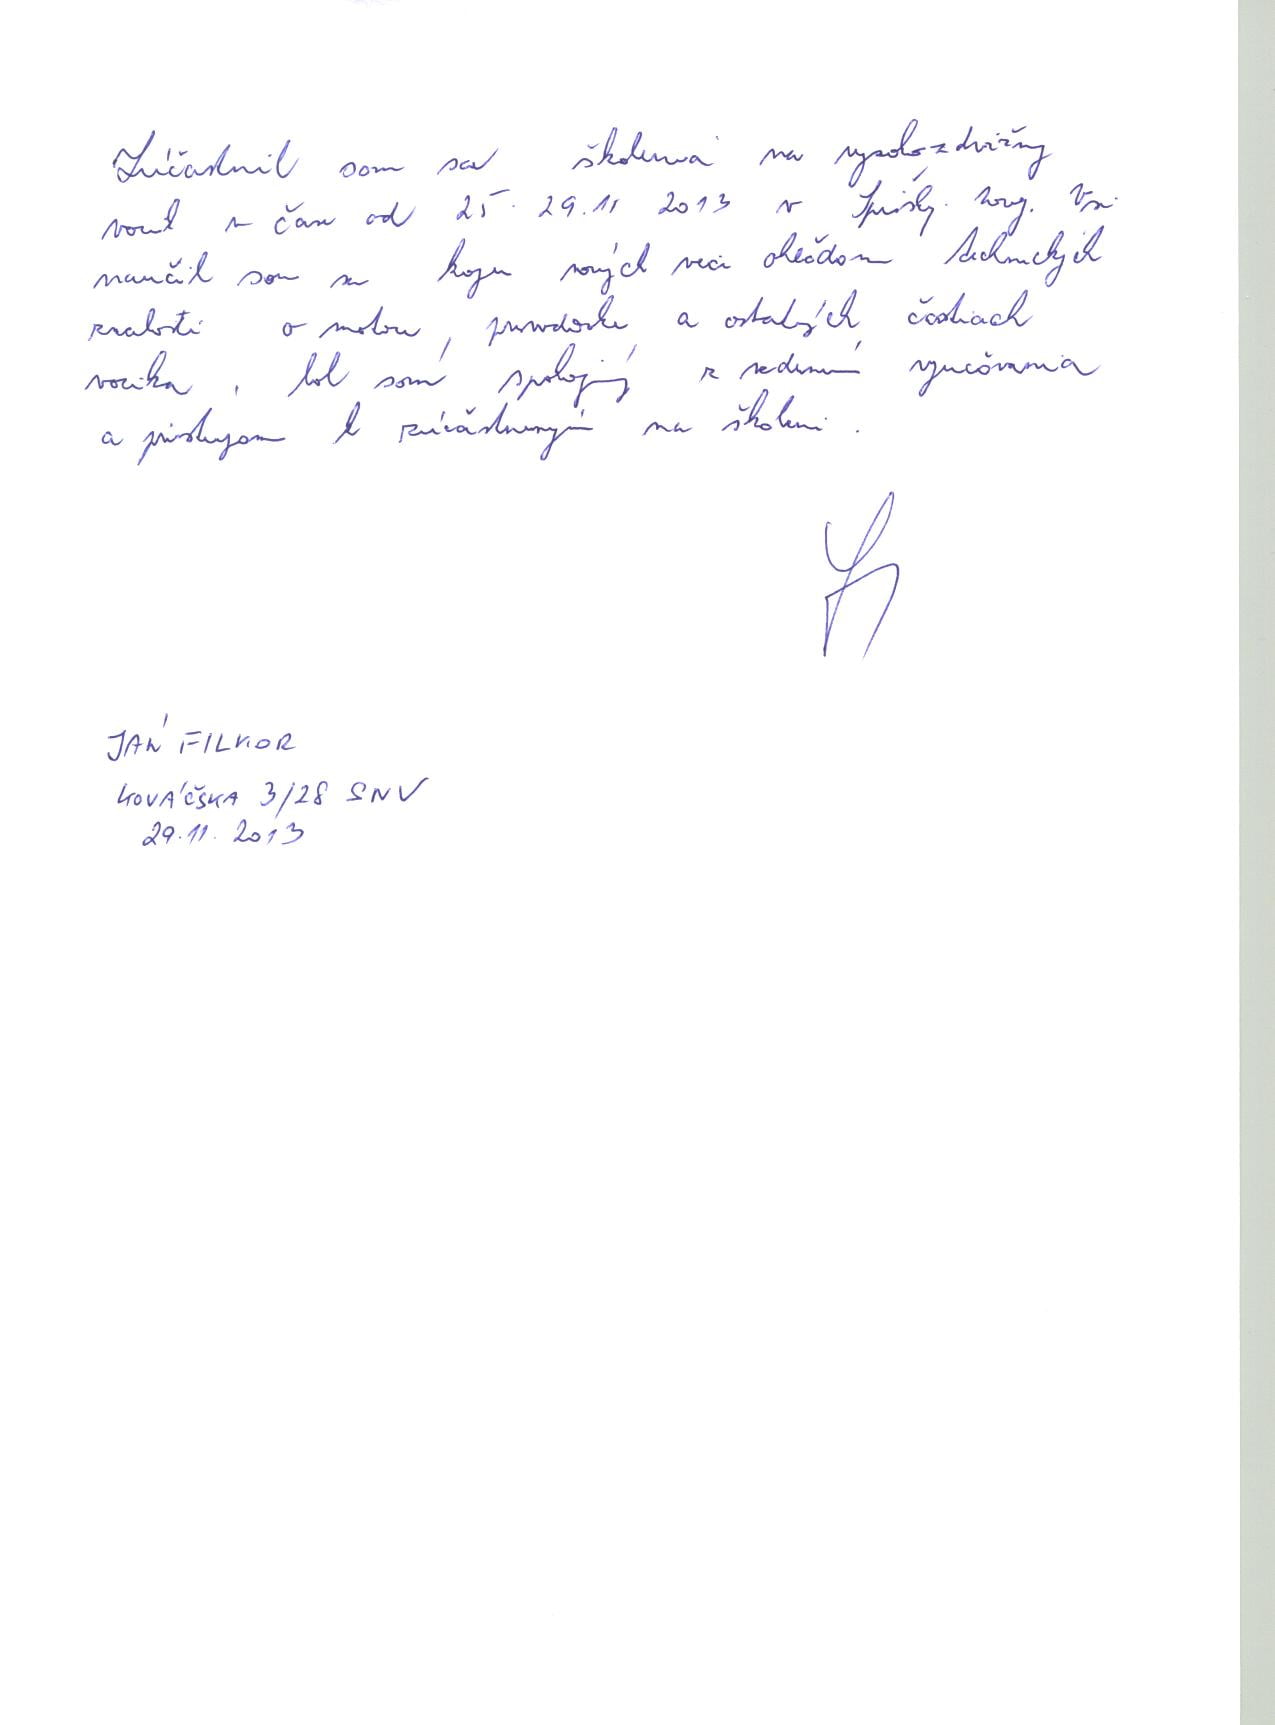 Zúčastnil som sa školenia na vysokozdvižný
vozík v čase od 25. 29.11 2013 v Spišsk. nov. Vsi
naučil som sa kopu nových veci ohľadom technických
znalosti o motore, prevodovke a ostatných častiach
vozika, bol som spokojný z vedením vyučovania
a prístupom k zúčastneným na školení.
JÁN FILKOR
KOVÁČSKA 3/28 SNV
29.11. 2013